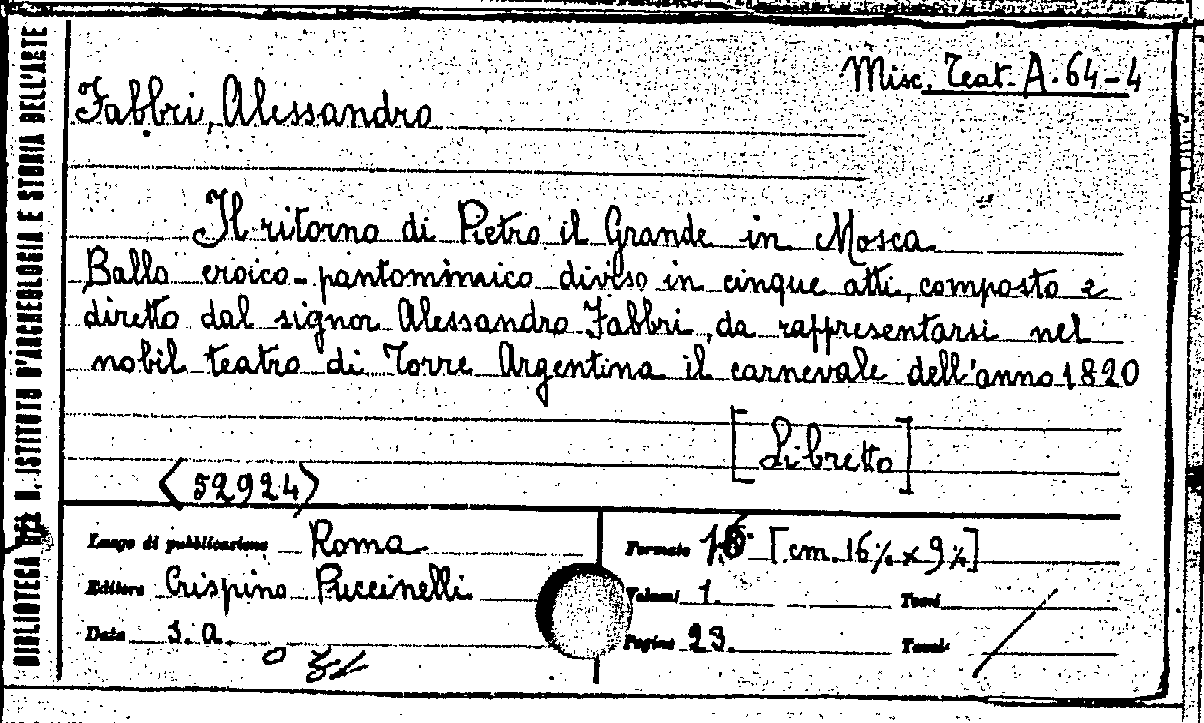 BIBLIOTECA DEL R. ISTITUTO D'ARCHEOLOGIA E STORIA DELL'ARTE
Misc. Teat. A. 64-4
Fabbri, Alessandro
Il ritorno di Pietro il Grande in Mosca
Ballo eroico-pantomimico diviso in cinque atti, composto e
diretto dal signor Alessandro Fabbri, da rappresentarsi nel
nobil teatro di Torre Argentina il carnevale dell'anno 1820
[Libretto]
<52924>
Luogo di pubblicazione Roma
Editore Crispino Puccinelli
Data s. a.
Formato [cm. 16½ x 9½]
Volumi 1.
Tomi
Pagine 23.
Tavole